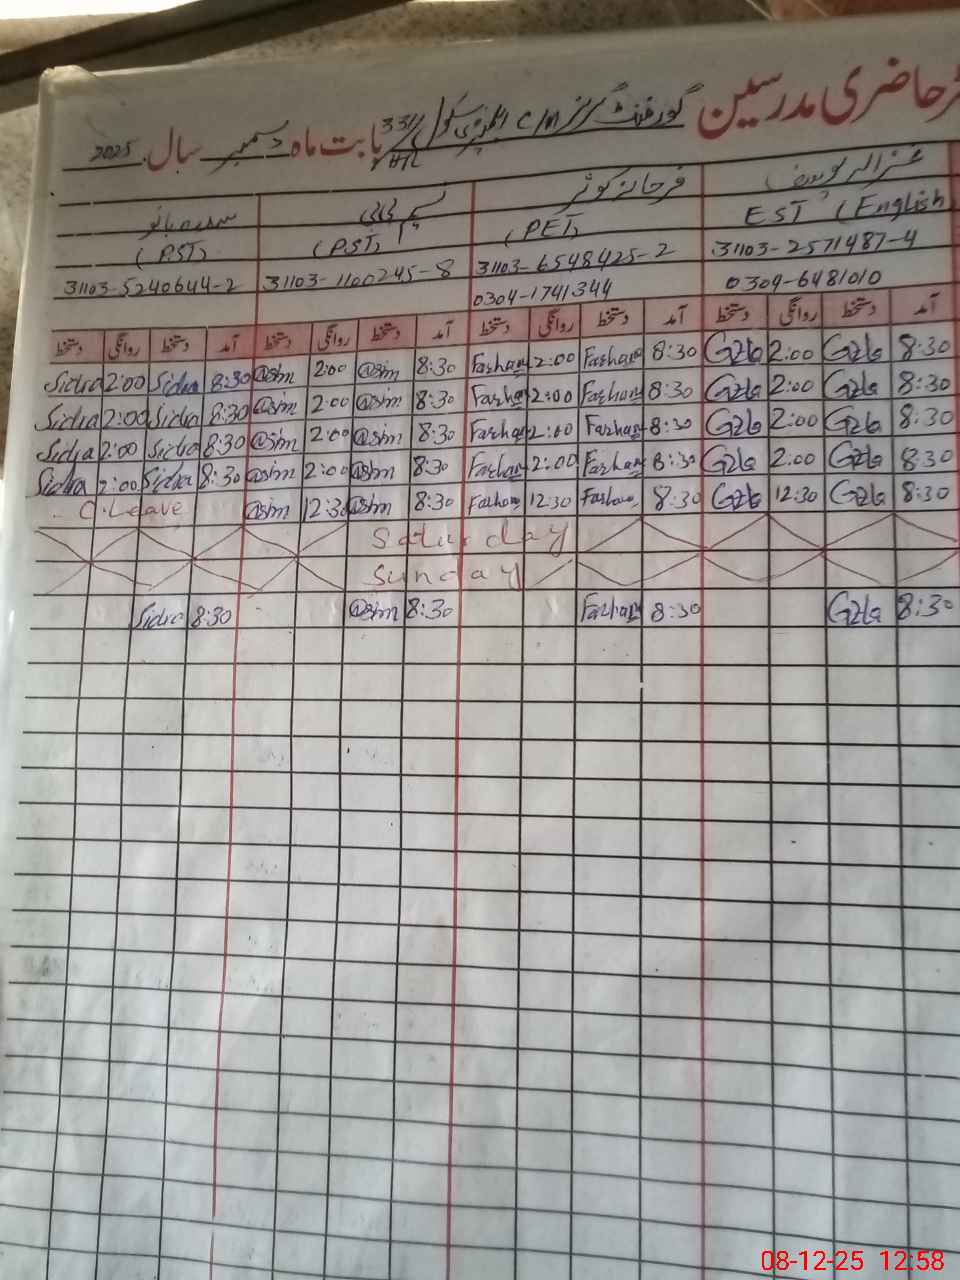 رجسٹر حاضری مدرسین گورنمنٹ گرلز C/M ایلیمنٹری سکول 331/HR بابت ماہ دسمبر سال 2025
غزالہ یوسف فرحانہ کوثر نسیم بی بی سدرہ بانو
EST (English) (PET) (PST) (PST)
31103-2571487-4 31103-6548425-2 31103-1100245-8 31103-5240644-2
0304-6481010 0304-1741344
آمد دستخط روانگی دستخط آمد دستخط روانگی دستخط آمد دستخط روانگی دستخط آمد دستخط روانگی دستخط
8:30 Gzla 2:00 Gzla 8:30 Farhan 2:00 Farhan 8:30 @sim 2:00 @sim 8:30 Sidra 2:00 Sidra
8:30 Gzla 2:00 Gzla 8:30 Farhan 2:00 Farhan 8:30 @sim 2:00 @sim 8:30 Sidra 2:00 Sidra
8:30 Gzla 2:00 Gzla 8:30 Farhan 2:00 Farhan 8:30 @sim 2:00 @sim 8:30 Sidra 2:00 Sidra
8:30 Gzla 2:00 Gzla 8:30 Farhan 2:00 Farhan 8:30 @sim 2:00 @sim 8:30 Sidra 2:00 Sidra
8:30 Gzla 12:30 Gzla 8:30 Farhan 12:30 Farhan 8:30 @sim 12:30 @sim C.Leave
Saturday
Sunday
8:30 Gzla 8:30 Farhan 8:30 @sim 8:30 Sidra
08-12-25 12:58